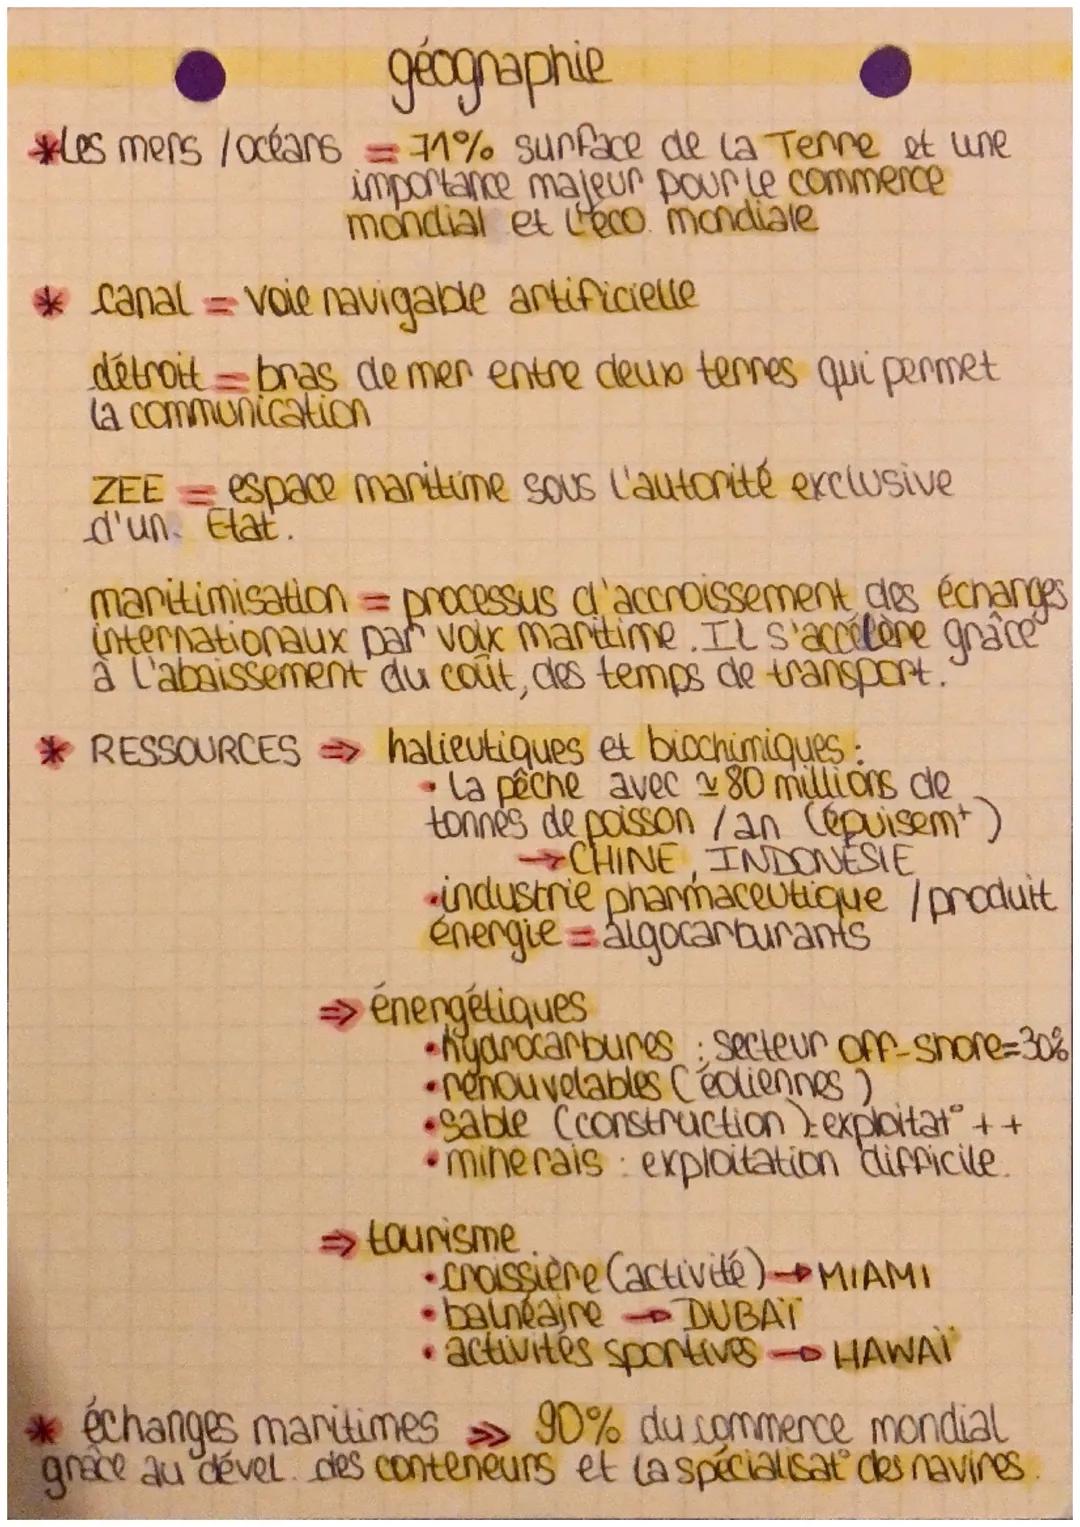 géographie
*Les mers / océans = 71% surface de la Terre et une
importance majeur pour le commerce
mondial et l'éco. mondiale
* canal = voie navigable artificielle
détroit = bras de mer entre deux terres qui permet
la communication
ZEE = espace maritime sous l'autorité exclusive
d'un Etat.
maritimisation = processus d'accroissement des échanges
internationaux par voix maritime. Il s'accélère grâce
à l'abaissement du coût, des temps de transport.
* RESSOURCES ⇒ halieutiques et biochimiques :
• la pêche avec ≃ 80 millions de
tonnes de poisson / an (épuisem⁺)
→ CHINE, INDONÉSIE
• industrie pharmaceutique / produit
énergie = algocarburants
⇒ énergétiques
• hydrocarbures : secteur off-shore=30%
• renouvelables (éoliennes)
• sable (construction) : exploitat° ++
• minerais : exploitation difficile.
⇒ tourisme
• croissière (activité) → MIAMI
• balnéaire → DUBAÏ
• activités sportives → HAWAÏ
* échanges maritimes ⇒ 90% du commerce mondial
grâce au dével. des conteneurs et la spécialisat° des navires.